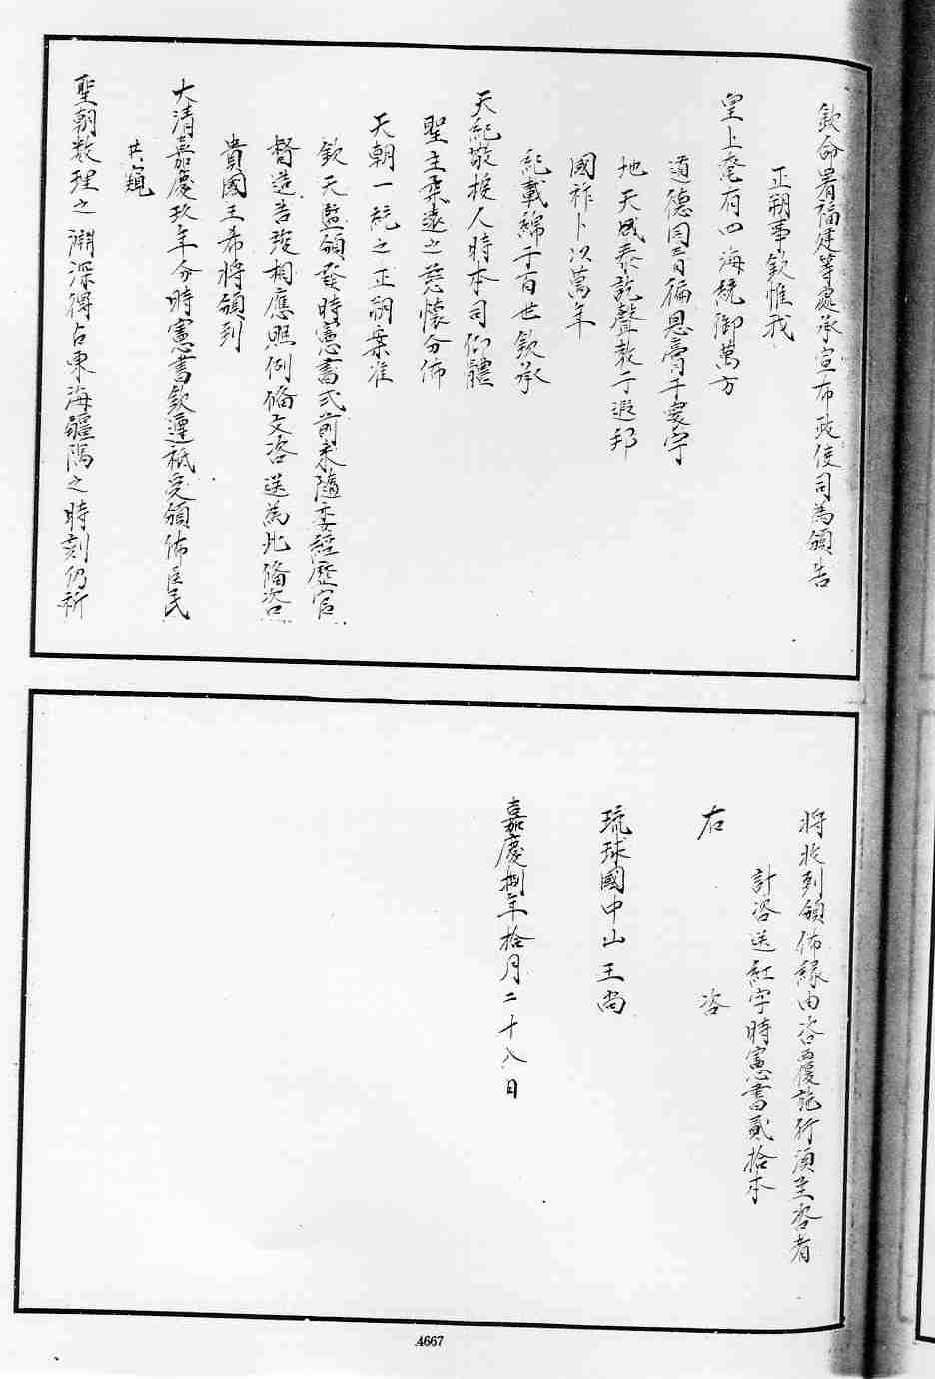 欽命署福建等處承宣布政使司為頒告
正朔事欽惟我
皇上奄有四海統御萬方
道德囿育徧恩膏于寰宇
地天咸泰訖聲教于遐邦
國祚卜以萬年
紀載綿于百世欽承
天紀敬授人時本司仰體
聖主柔遠之慈懷分佈
天朝一統之正朔案准
欽天監頒發時憲書式前來隨委經歷官
督造告竣相應照例備文咨送為此備咨
貴國王希將頒到
大清嘉慶玖年分時憲書欽遵祗受頒佈臣民
共窺
聖朝數理之淵深得占東海疆隅之時刻仍祈
將收到頒佈緣由咨覆施行須至咨者
計咨送紅字時憲書貳拾本
右 咨
琉球國中山王尚
嘉慶捌年拾月二十八日
4667